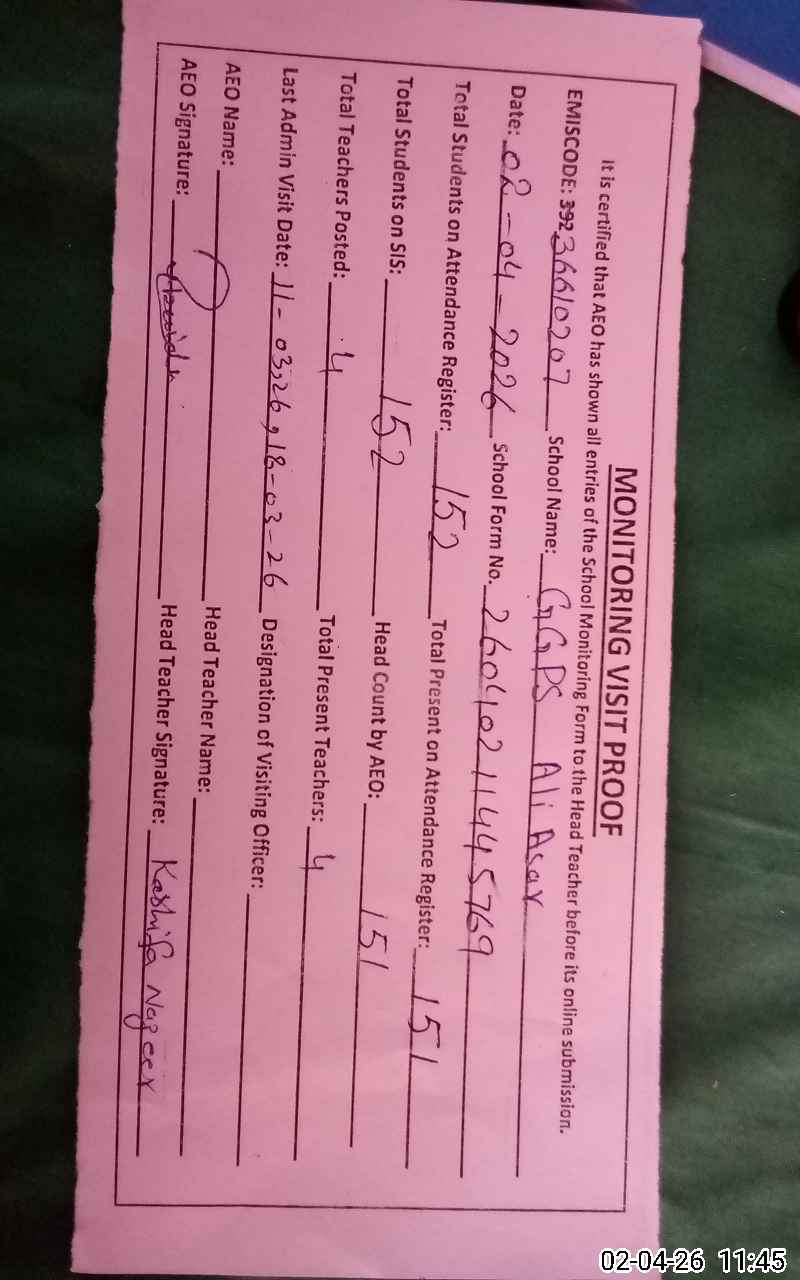 MONITORING VISIT PROOF
It is certified that AEO has shown all entries of the School Monitoring Form to the Head Teacher before its online submission.
EMISCODE: 392 36610207 School Name: GGPS Ali Asar
Date: 02-04-2026 School Form No. 260402114445769
Total Students on Attendance Register: 152 Total Present on Attendance Register: 151
Total Students on SIS: 152 Head Count by AEO: 151
Total Teachers Posted: 4 Total Present Teachers: 4
Last Admin Visit Date: 11-03-26, 18-03-26 Designation of Visiting Officer:
AEO Name: Head Teacher Name:
AEO Signature: Head Teacher Signature: Kashifa Nazeer
02-04-26 11:45